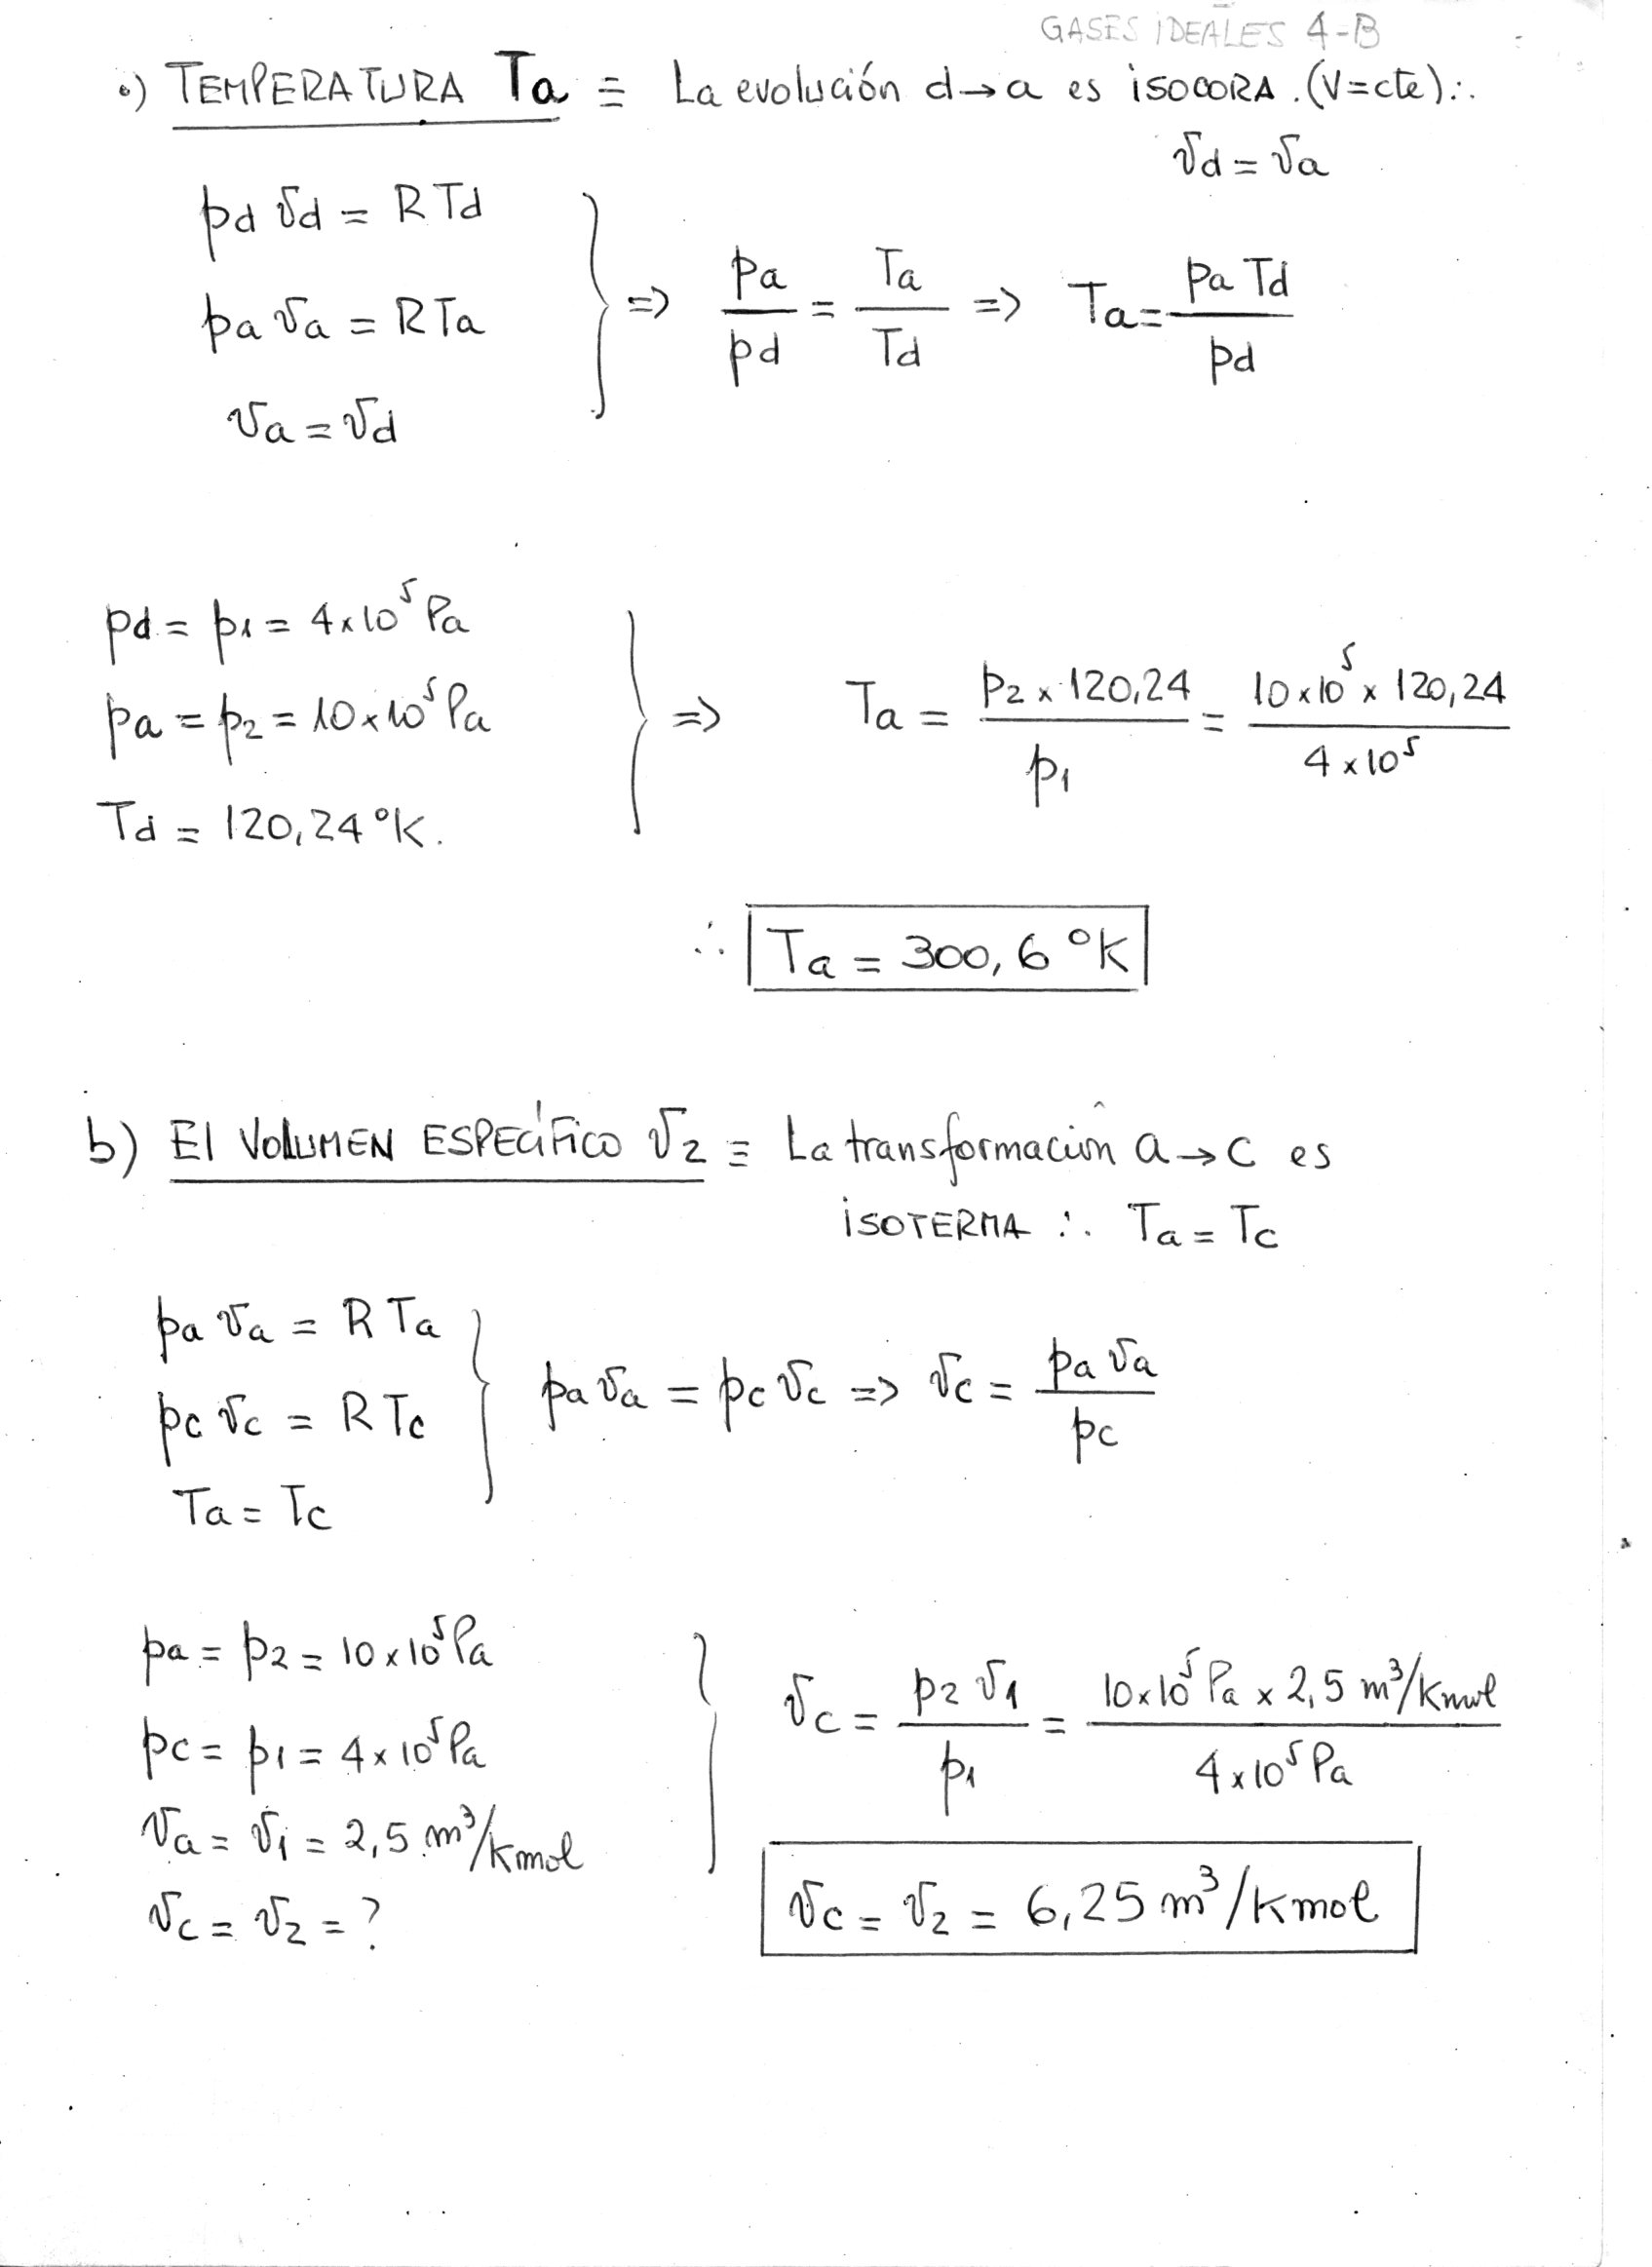 GASES IDEALES 4-B
•) TEMPERATURA Ta ≡ La evolución d→a es ISOCORA. (V=cte) ∴
vd = va
pd vd = R Td
pa va = R Ta
va = vd
=> pa/pd = Ta/Td => Ta = pa Td / pd
pd = p1 = 4x10⁵ Pa
pa = p2 = 10x10⁵ Pa
Td = 120,24 °K.
=> Ta = p2 x 120,24 / p1 = 10x10⁵ x 120,24 / 4x10⁵
∴ Ta = 300,6 °K
b) El VOLUMEN ESPECÍFICO v2 ≡ La transformación a→c es
ISOTERMA ∴ Ta = Tc
pa va = R Ta
pc vc = R Tc
Ta = Tc
pa va = pc vc => vc = pa va / pc
pa = p2 = 10x10⁵ Pa
pc = p1 = 4x10⁵ Pa
va = v1 = 2,5 m³/Kmol
vc = v2 = ?
vc = p2 v1 / p1 = 10x10⁵ Pa x 2,5 m³/Kmol / 4x10⁵ Pa
vc = v2 = 6,25 m³/Kmol